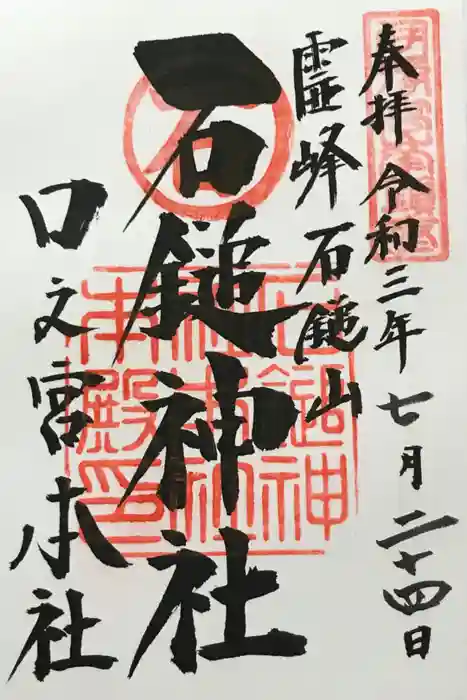 奉拝 令和三年七月二十四日
霊峰石鎚山
石鎚神社
口之宮本社
石
石鎚神
社口之宮
本殿印